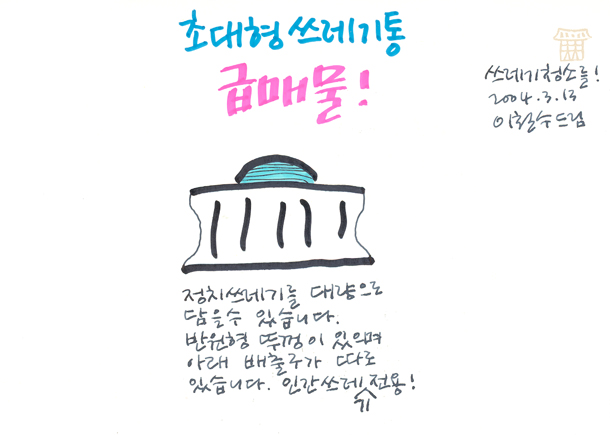 초대형 쓰레기통
급매물!
쓰레기 청소를!
2004.3.13
이철수 드림
정치쓰레기를 대량으로
담을수 있습니다.
반원형 뚜껑이 있으며
아래 배출구가 따로
있습니다. 인간쓰레기 전용!